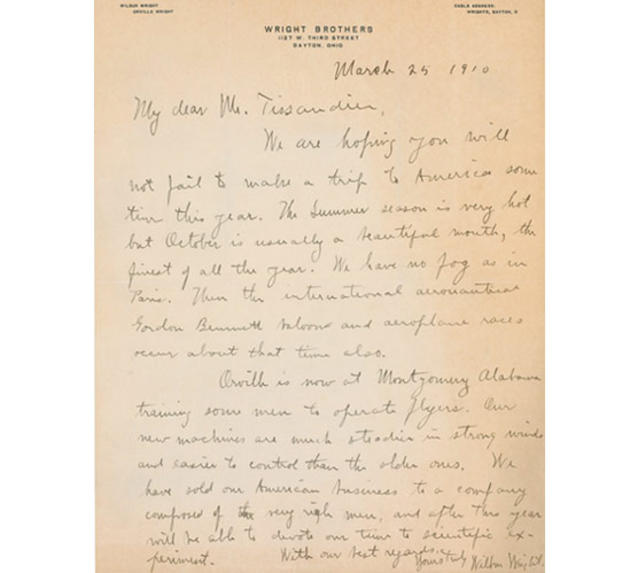 WILBUR WRIGHT
ORVILLE WRIGHT
CABLE ADDRESS:
WRIGHTS, DAYTON, O
WRIGHT BROTHERS
1127 W. THIRD STREET
DAYTON, OHIO
March 25 1910
My dear Mr. Tissandier,
We are hoping you will
not fail to make a trip to America some
time this year. The Summer season is very hot
but October is usually a beautiful month, the
finest of all the year. We have no fog as in
Paris. Then the international aeronautical
Gordon Bennett baloons and aeroplane races
occur about that time also.
Orville is now at Montgomery Alabama
training some men to operate flyers. Our
new machines are much steadier in strong winds
and easier to control than the older ones. We
have sold our American business to a company
composed of very rich men, and after this year
will be able to devote our time to scientific ex-
periment. With our best regards.
Yours truly Wilbur Wright.